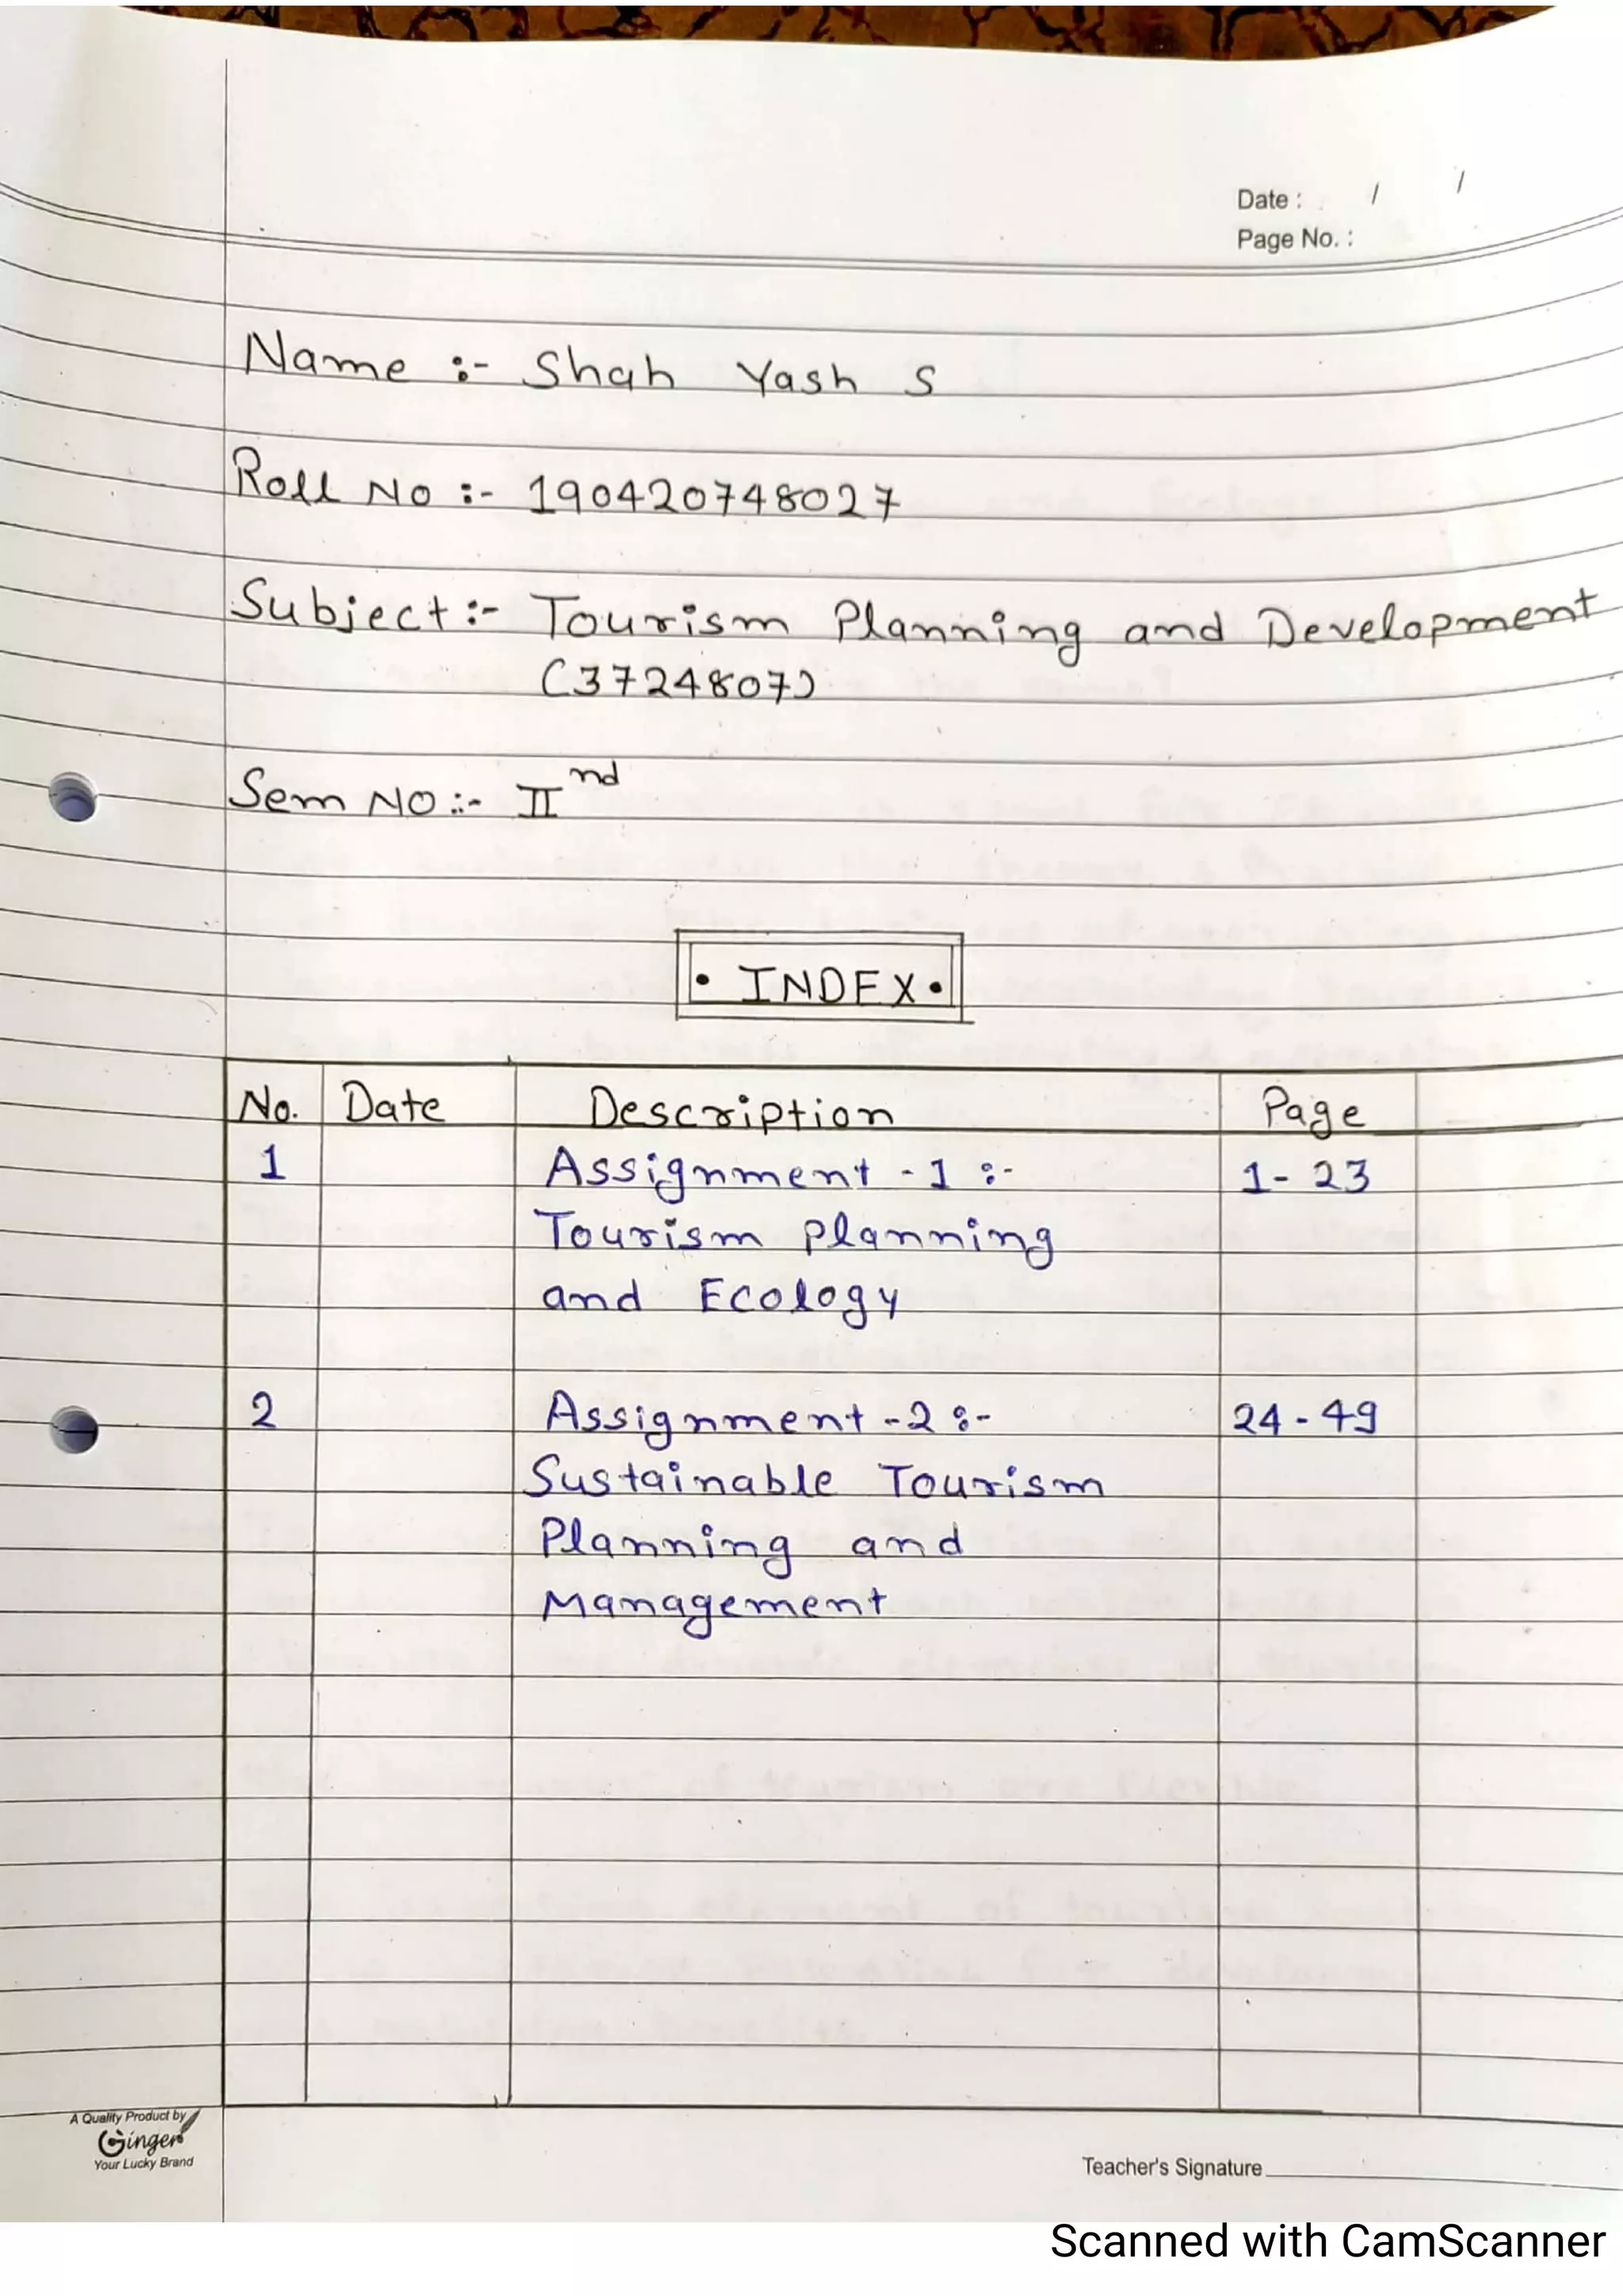 Date : / /
Page No. :
Name :- Shah Yash S
Roll No :- 190420748027
Subject :- Tourism Planning and Development
(3724807)
Sem NO :- II nd
• INDEX •
No. Date Description Page
1 Assignment - 1 :- 1- 23
Tourism planning
and Ecology
2 Assignment - 2 :- 24 - 49
Sustainable Tourism
Planning and
Management
A Quality Product by
Ginger
Your Lucky Brand
Teacher's Signature
Scanned with CamScanner